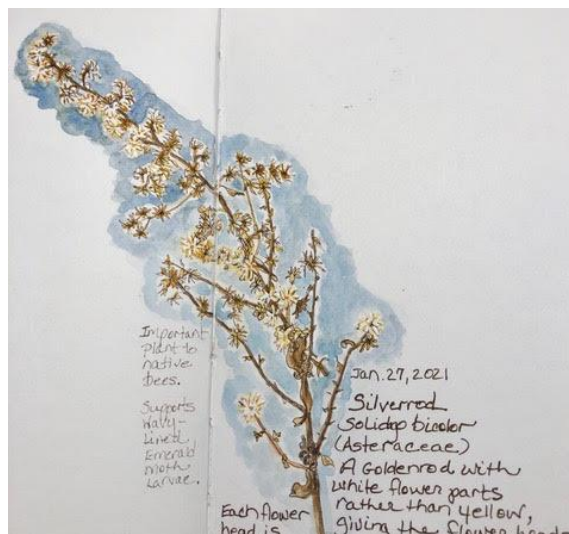 Important
plant to
native
bees.
Supports
Wavy-
Lined
Emerald
moth
Larvae.
Jan. 27, 2021
Silverrod
Solidago bicolor
(Asteraceae)
A Goldenrod with
white flower parts
rather than yellow,
giving the flower heads
Each flower
head is